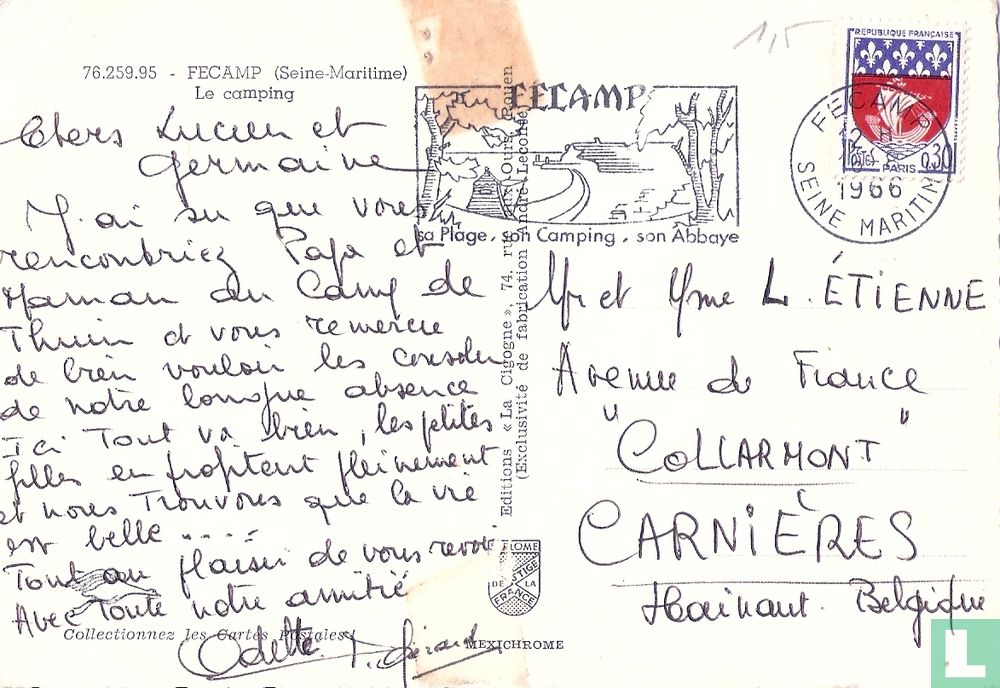 76.259.95 - FECAMP (Seine-Maritime)
Le camping
Chers Lucien et
Germaine
J'ai su que vous
rencontriez Papa et
Maman au Camp de
Thuin et vous remercie
de bien vouloir les consoler
de notre longue absence
Ici Tout va bien, les petites
filles en profitent pleinement
et nous Trouvons que la vie
est belle .....
Tout au plaisir de vous revoir
Avec Toute notre amitié
Odette
Collectionnez les Cartes Postales !
Editions « La Cigogne », 74, rue aux Ours, Rouen
(Exclusivité de fabrication André Leconte)
DE LA
FRANCE
MEXICHROME
1,5
FECAMP
sa Plage, son Camping, son Abbaye
REPUBLIQUE FRANÇAISE
POSTES
0,30
PARIS
FECAMP
1966
SEINE MARITIME
Mr et Mme L. ÉTIENNE
Avenue de France
"COLLARMONT"
CARNIÈRES
Hainaut. Belgique
L